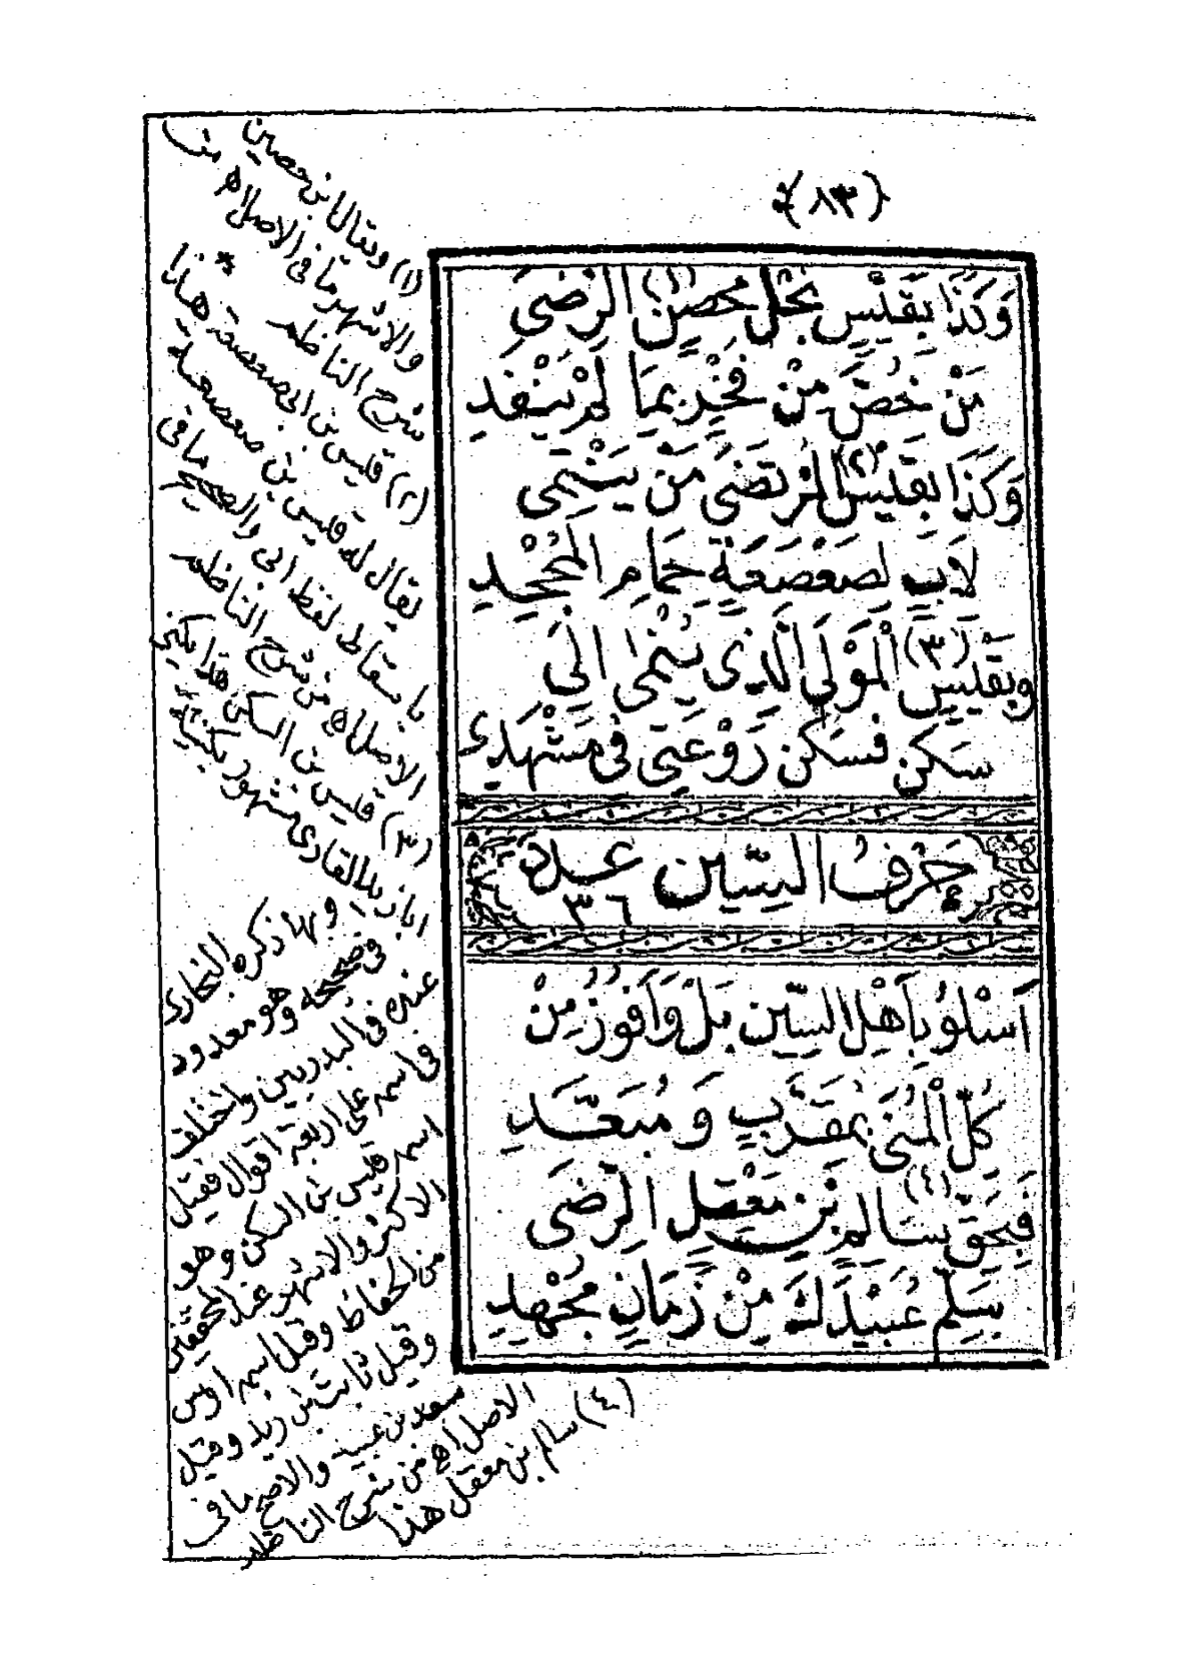 {٨٣}
وَكَذَا بِقَيْسٍ نَجْلِ مُحْصِنٍ (١) الرِّضَى
مَنْ خُصَّ مِنْ فَخْرٍ بِمَا لَمْ يَنْفَدِ
وَكَذَا بِقَيْسِ (٢) الْمُرْتَضَى مَنْ يَنْتَمِى
لِأَبٍ لِصَعْصَعَةٍ حَمَامِ الْجُحَّدِ
وَبِقَيْسِ (٣) الْمَوْلَى الَّذِى يُنْمَى اِلَى
سَكَنٍ فَسَكِّنْ رَوْعَتِى فِى مَشْهَدِى
حَرْفُ السِّينِ عدة ٣٦
اَسْلُو بِاَهْلِ السِّينِ بَلْ وَاَفُوزُ مِنْ
كُلِّ الْمُنَى بِمُقَرَّبٍ وَمُبَعَّدِ
فَبِحَقِّ سَالِمِ (٤) بْنِ مَعْقِلٍ الرِّضَى
سَلِّمْ عُبَيْدَكَ مِنْ زَمَانٍ مُجْهِدِ
(١) ويقال ابن حصين
والاشهر ما فى الاصل اه من
شرح الناظم *
(٢) قيس بن ابى صعصعة هذا
يقال له قيس بن صعصعة
باسقاط لفظ ابى والصحيح ما فى
الاصل اه من شرح الناظم
(٣) قيس بن السكن هذا يكنى
ابا زيد القارى مشهور بكنيته
وبها ذكره البخارى
فى صحيحه وهو معدود
عنده فى البدريين واختلف
فى اسمه على اربعة اقوال فقيل
اسمه قيس بن السكن وهو
الاكثر والاشهر عند المحققين
من الحفاظ وقيل اسمه اوس
وقيل ثابت بن زيد وقيل
سعد بن عبيد والاصح ما فى
الاصل اه من شرح الناظم
(٤) سالم بن معقل هذا